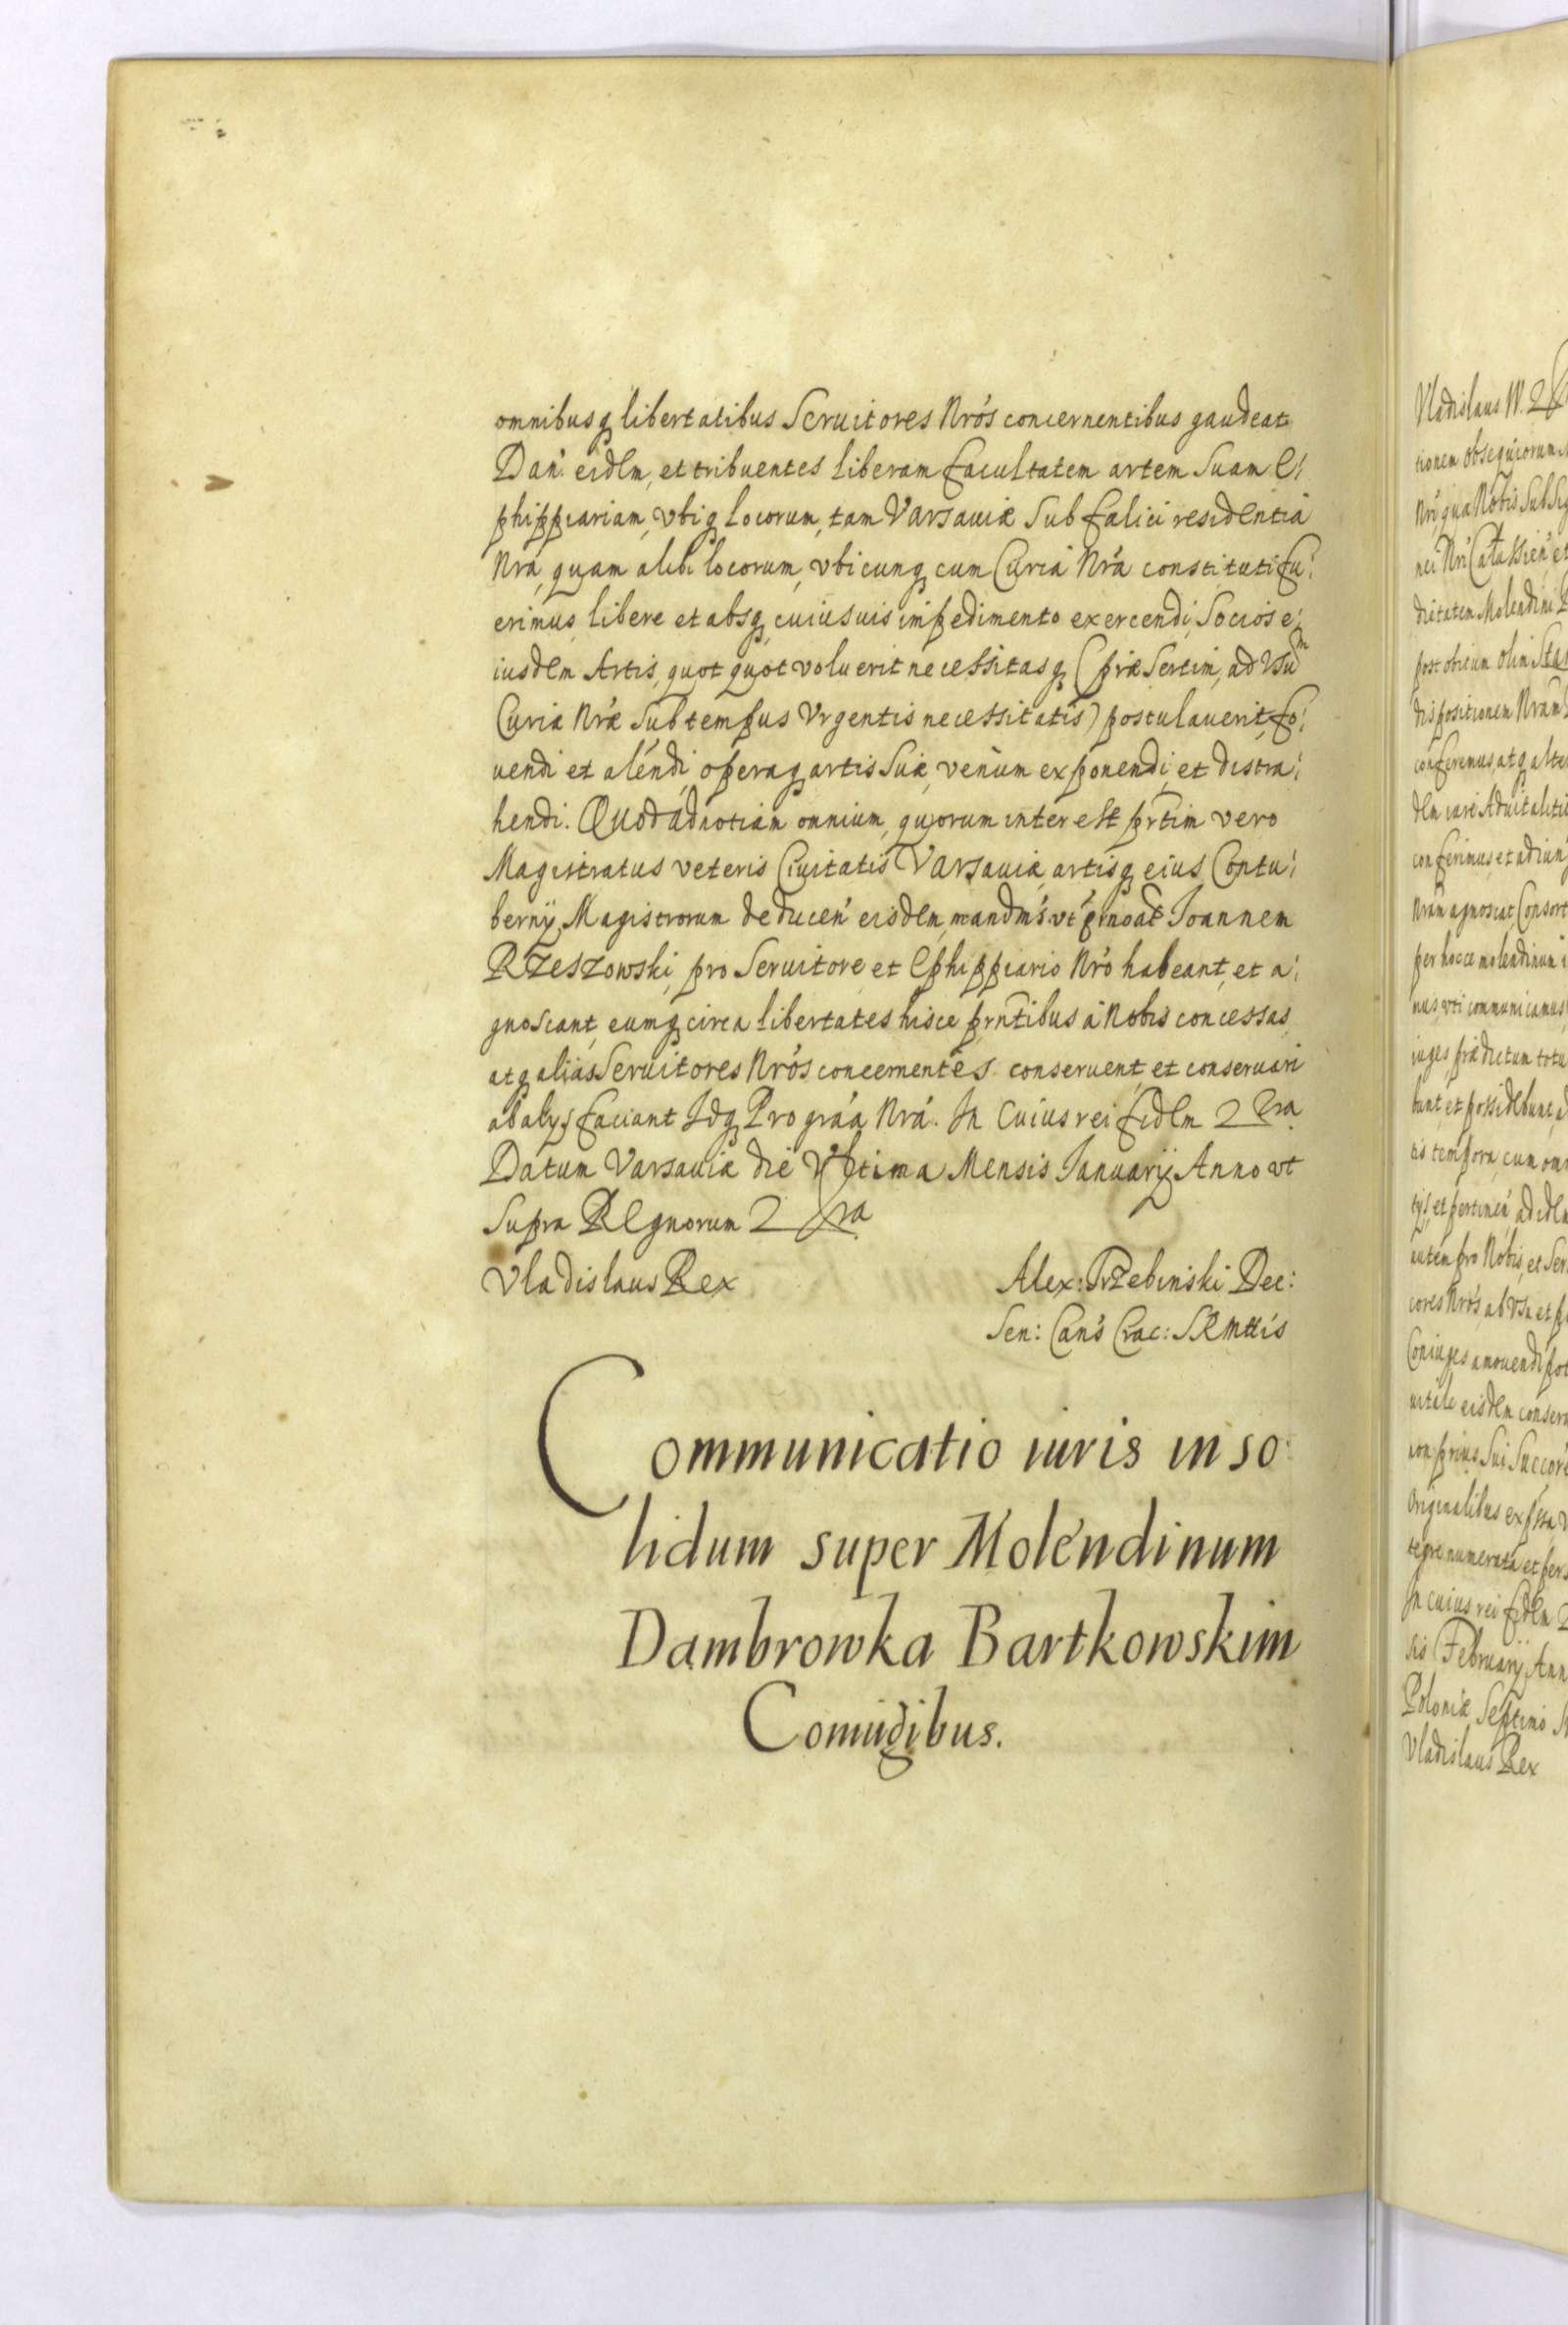 omnibusq libertatibus Seruitores Nrós concernentibus gaudeat
Dan. eidem, et tribuentes liberam facultatem artem suam E:
phippiariam, vbiq locorum, tam Varsauiæ sub fælici residentia
Nrá, quam alibi locorum, vbicunq cum Curia Nrá constituti fu:
erimus, libere et absq cuiusuis impedimento exercendi, Socios e:
iusdem Artis, quot quot voluerit necessitasq (præsertim, ad Vsum
Curiæ Nræ sub tempus Vrgentis necessitatis) postulauerit, fo:
uendi et aléndi, operaq artis suæ, venùm exponendi, et distra:
hendi. Quod ad notiam omnium, quorum interest prtim vero
Magistratus veteris Ciuitatis Varsauiæ, artisq eius Contu:
bernÿ Magistrorum deducen eisdem, mandms vt prnoat Joannem
Rzeszowski, pro Seruitore et Ephippiario Nro habeant, et a:
gnoscant, eumq circa libertates hisce prntibus à Nobis concessas
atq alias Seruitores Nrós concernentes conseruent, et conseruari
ab alÿs faciant Idq Pro gráa Nrá. In Cuius rei fidem 2 Xra
Datum Varsauiæ die Vltima Mensis Januarÿ Anno vt
supra Regnorum 2 Xra
Vladislaus Rex Alex: Trzebinski Dec:
Sen: Canś Crac: SRMttis
Communicatio iuris in so:
lidum super Moléndinum
Dambrowka Bartkowskim
Coniugibus.
Vladislaus IV. 2
tionem obsequiorum
Nri qua Nobis sub
post obitum olim
dispositionem Nram
conferemus, atq
conferimus, et
Nram agnoscat Consort
per hocce molendinum
nus, vti communicamus
iuges prædictum
bunt, et possidebunt
tis tempora, cum
autem pro Nobis, et
cores Nrós, ab Vsu et
Coniuges amouendi
uitale eisdem
Originalibus
In cuius rei fidem
sis Februarÿ Ann
Poloniæ Septimo
Vladislaus Rex